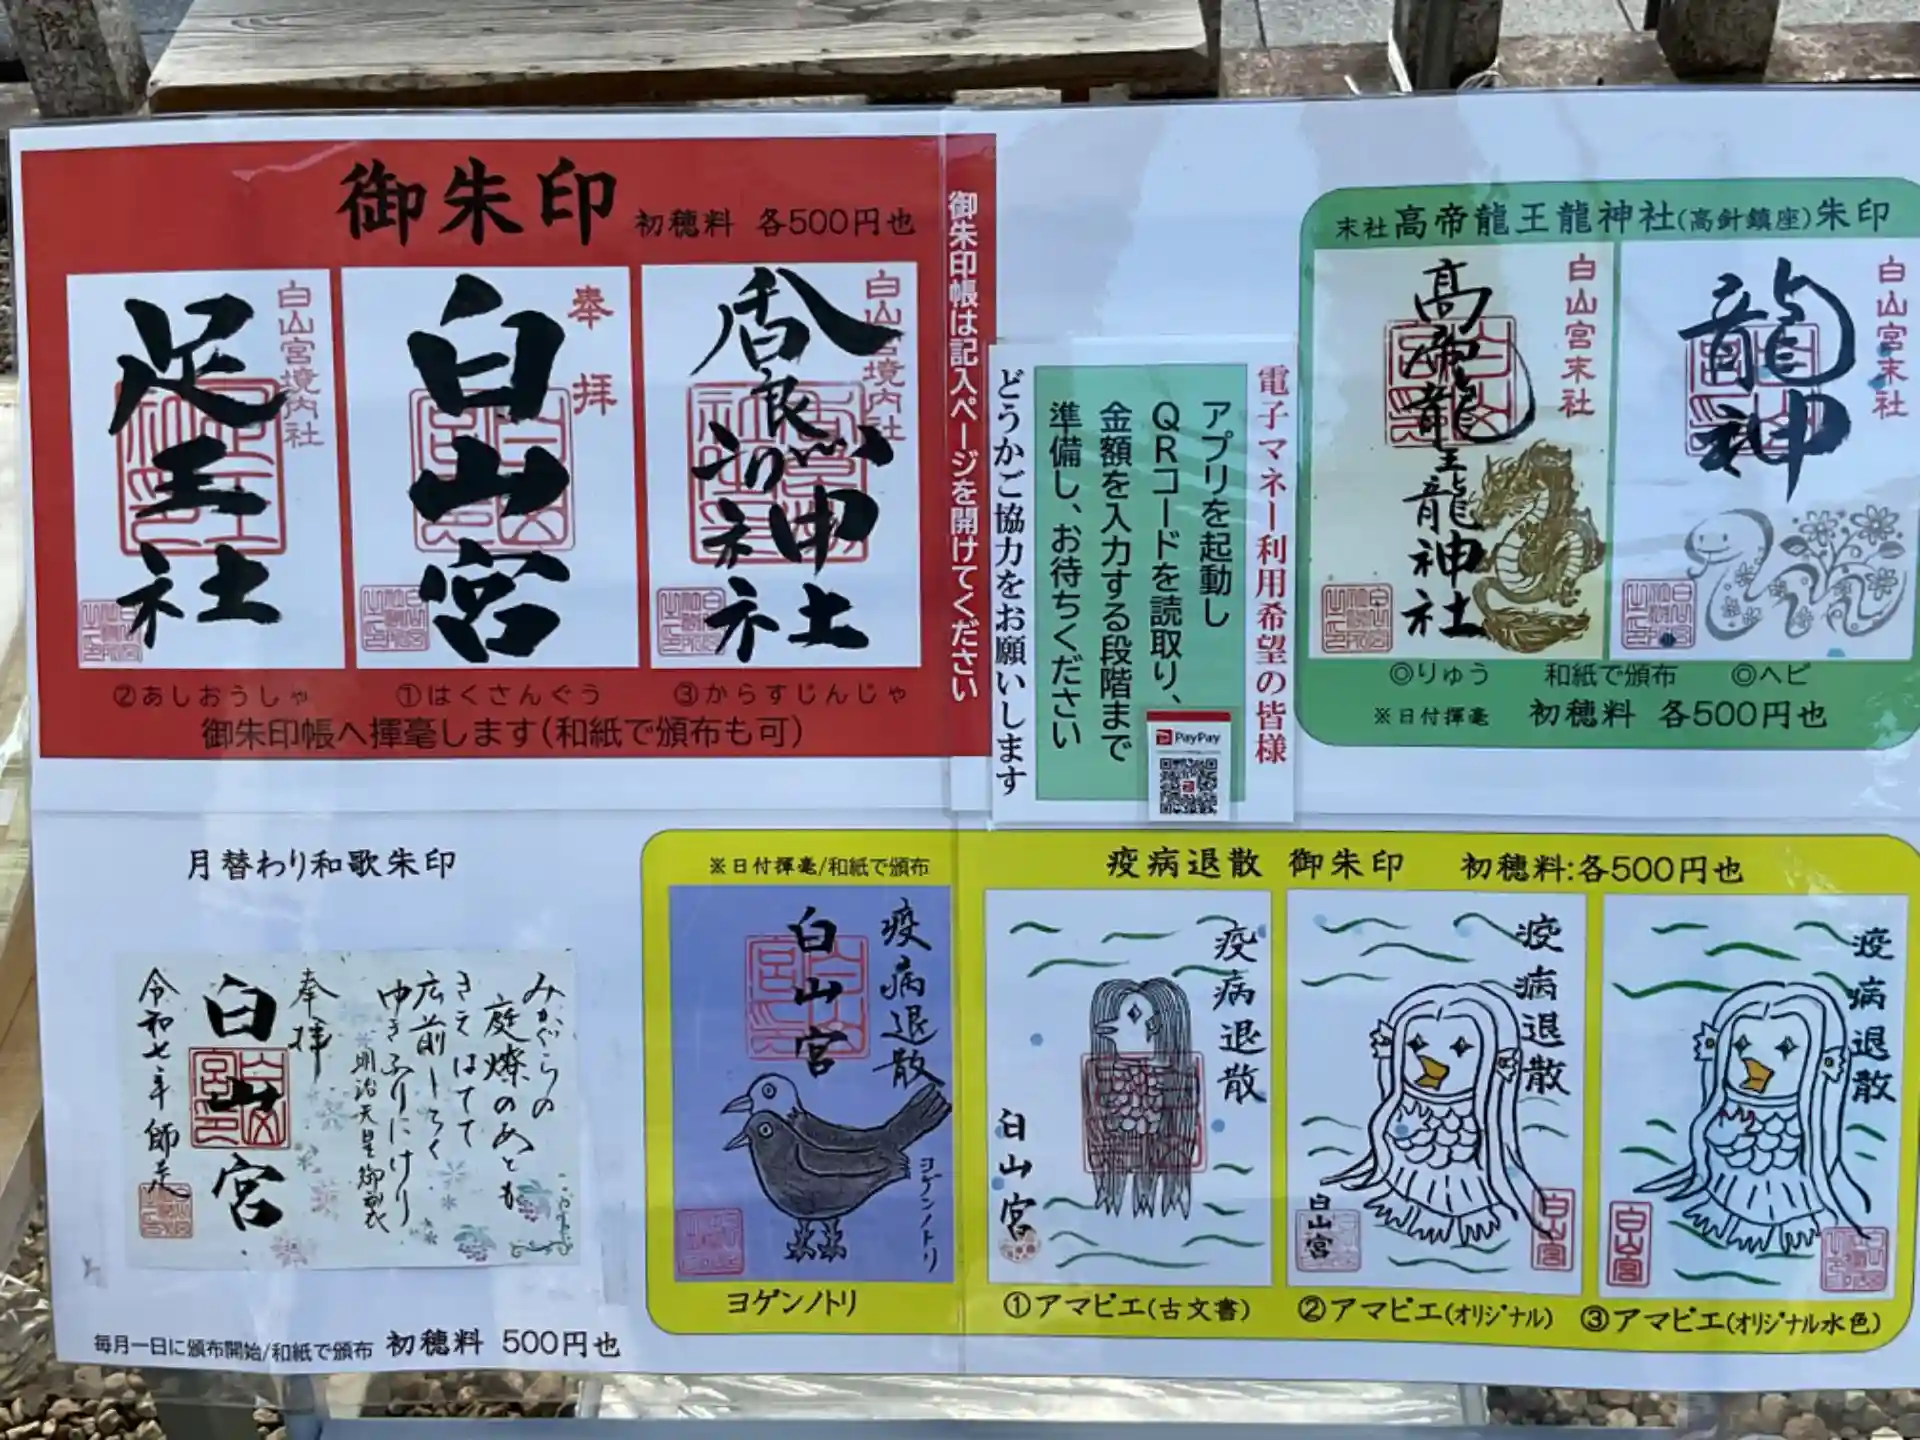 御朱印 初穂料 各500円也
白山宮境内社
足王社
奉拝
白山宮
白山宮境内社
香良洲神社
②あしおうしゃ
①はくさんぐう
③からすじんじゃ
御朱印帳へ揮毫します(和紙で頒布も可)
御朱印帳は記入ページを開けてください
電子マネー利用希望の皆様
アプリを起動し
QRコードを読取り、
金額を入力する段階まで
準備し、お待ちください
どうかご協力をお願いします
PayPay
末社高帝龍王龍神社(高針鎮座)朱印
白山宮末社
高帝龍王龍神社
白山宮末社
龍神
◎りゅう 和紙で頒布 ◎ヘビ
※日付揮毫 初穂料 各500円也
月替わり和歌朱印
みかぐらの
庭燎のめとも
きえはてて
広前しろく
ゆきふりにけり
明治天皇御製
奉拝
白山宮
令和七年師走
毎月一日に頒布開始/和紙で頒布 初穂料 500円也
※日付揮毫/和紙で頒布
疫病退散 御朱印 初穂料:各500円也
疫病退散
白山宮
ヨゲンノトリ
ヨゲンノトリ
疫病退散
白山宮
①アマビエ(古文書)
疫病退散
白山宮
白山宮
②アマビエ(オリジナル)
疫病退散
白山宮
③アマビエ(オリジナル水色)